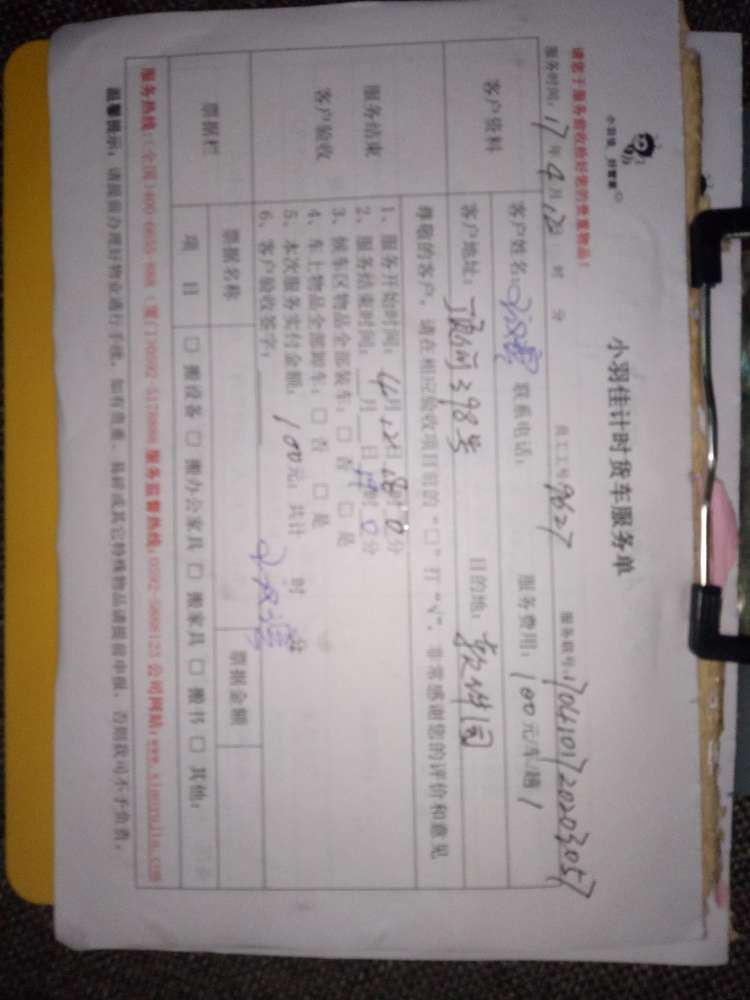 小羽佳 好管家
小羽佳计时货车服务单
请您于服务前收捡好您的贵重物品!
服务时间: 17 年 4 月 12日 时 分 员工工号 9627 服务联号: 1704101720203057
客户资料
客户姓名: 联系电话: 服务费用: 100 元/车.趟 1
客户地址: 398号 目的地: 软件园
尊敬的客户, 请在相应验收项目前的“□”打“√”, 非常感谢您的评价和意见
服务结束
客户验收
1、服务开始时间: 4月12日 18时0分
2、服务结束时间: __月__日 19时0分
3、候车区物品全部装车: □ 否 □ 是
4、车上物品全部卸车: □ 否 □ 是
5、本次服务实付金额: 100元; 共计 时 分
6、客户验收签字:
票据栏
票据名称 票据金额
项 目 □ 搬设备 □ 搬办公家具 □ 搬家具 □ 搬书 □ 其他:
服务热线: (全国)400-6655-888 (厦门)0592-5128888 服务监督热线:0592-5888123 公司网站:www.xiaoyujia.com
温馨提示: 请提前办理好物业通行手续, 如有贵重、易碎或其它特殊物品请提前申报, 否则我司不予负责。